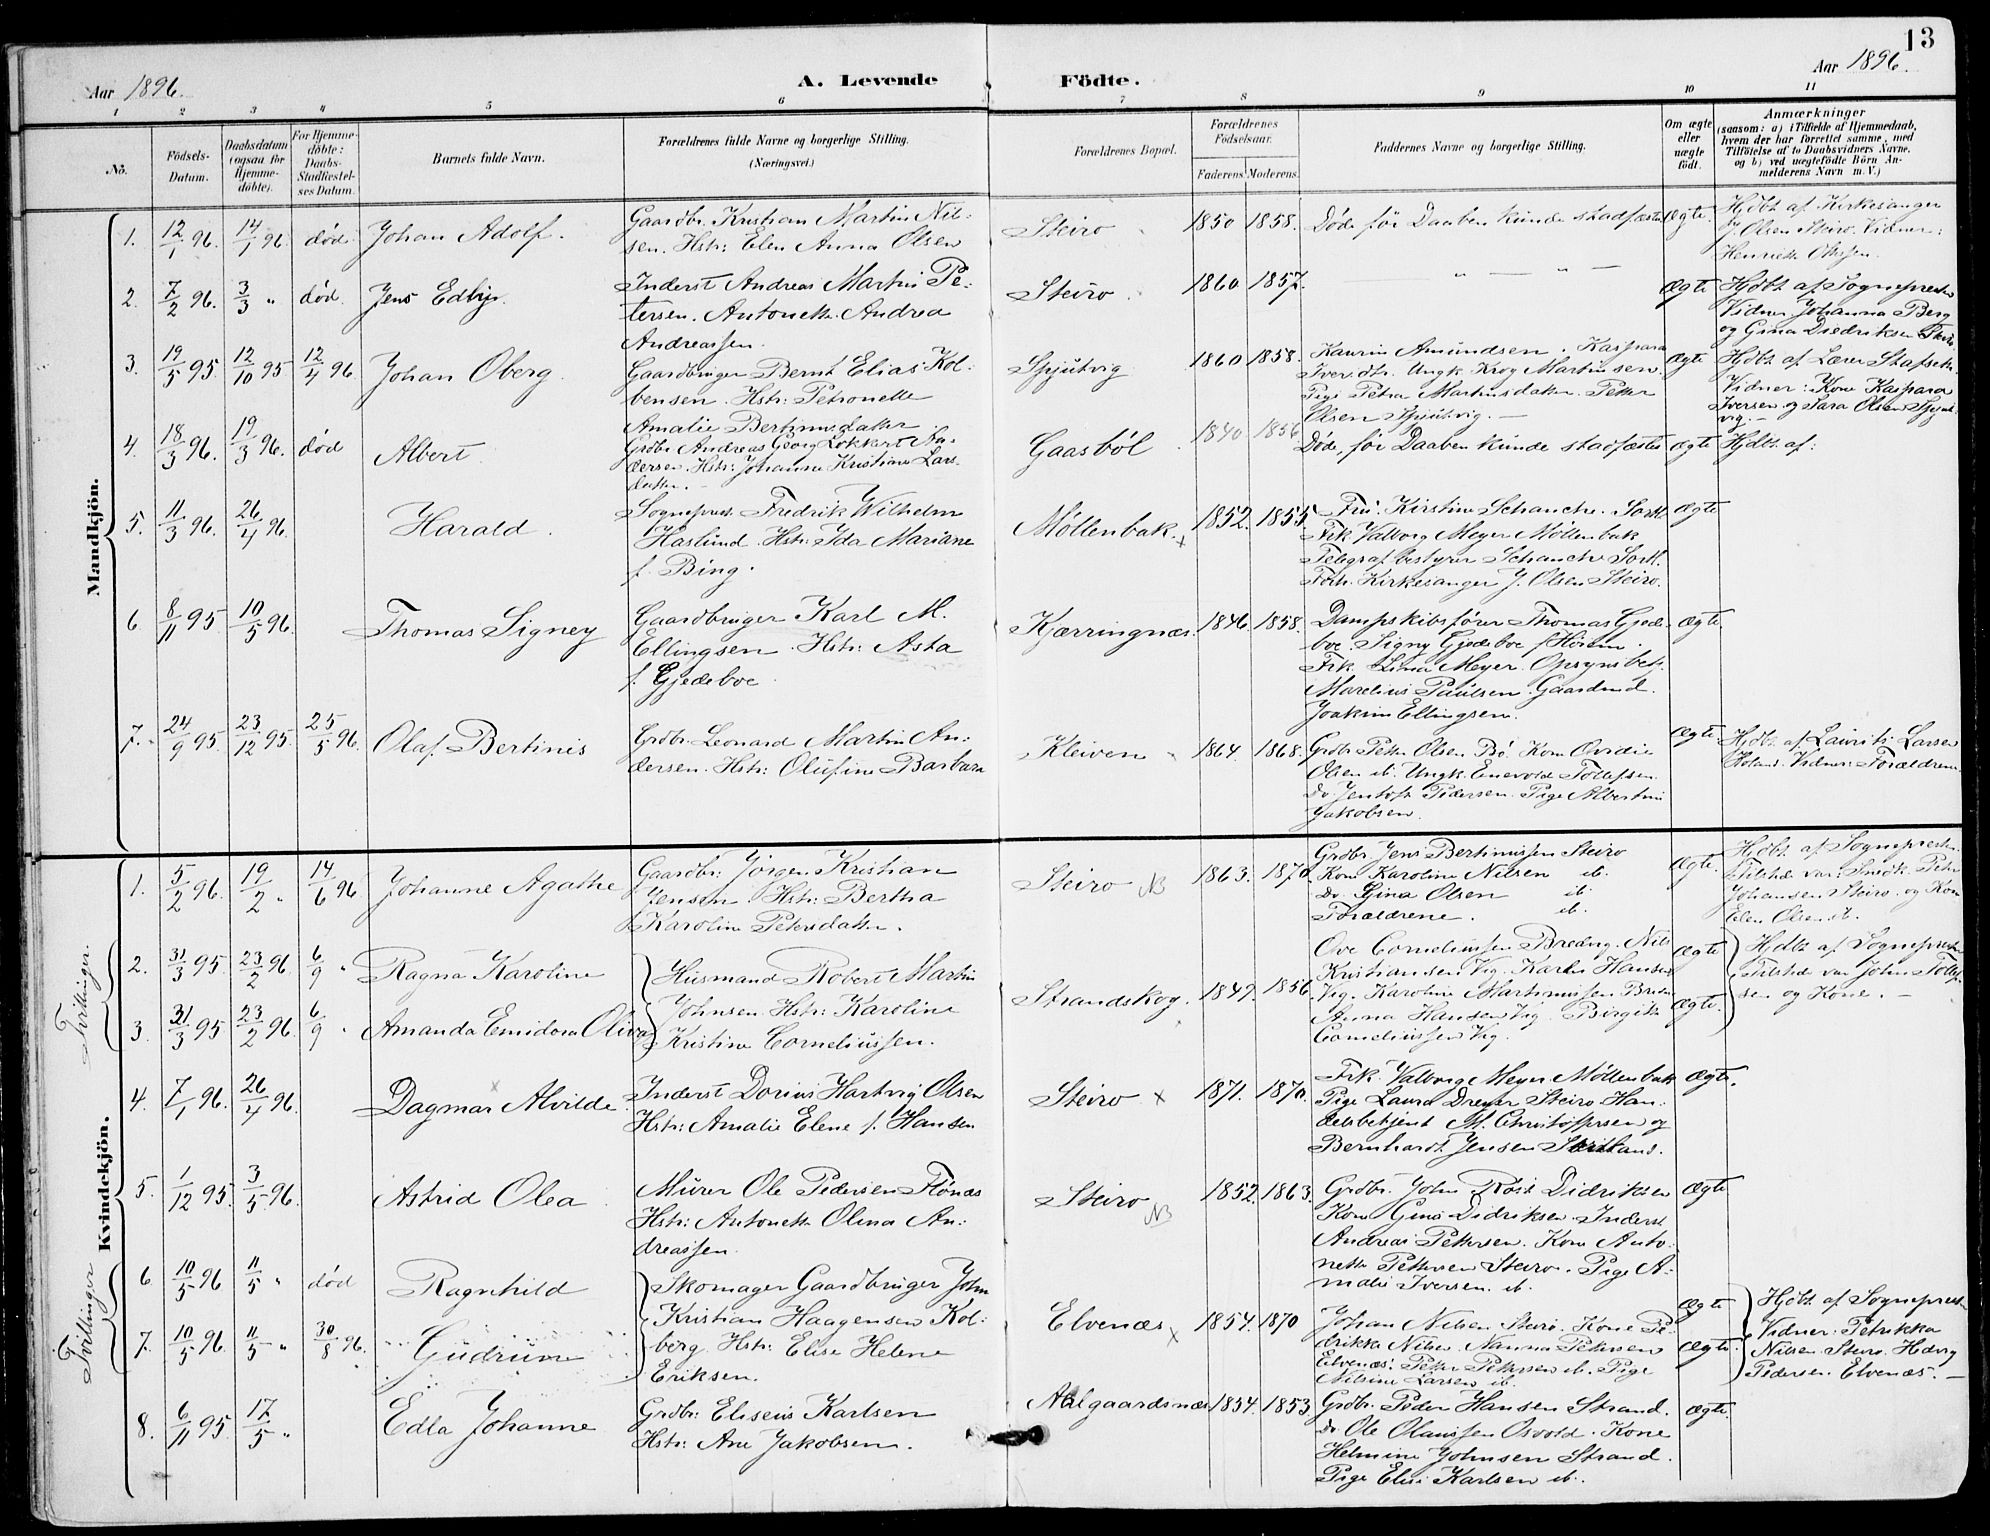 13
Aar 1896.
A. Levende Födte.
Aar 1896.
1 2 3 4 5 6 7 8 9 10 11
No.
Födsels-
Datum.
Daabsdatum
(ogsaa för
Hjemme-
döbte).
For Hjemme-
döbte:
Daabs-
Stadfæstel-
ses Datum.
Barnets fulde Navn.
Forældrenes fulde Navne og borgerlige Stilling.
(Næringsvei.)
Forældrenes Bopæl.
Forældrenes
Födselsaar.
Faderens. Moderens.
Faddernes Navne og borgerlige Stilling.
Om ægte
eller
uægte
födt.
Anmærkninger
(saasom: a) i Tilfælde af Hjemmedaab,
hvem der har forrettet samme, med
Tilföielse af to Daabsvidners Navne,
og b) ved uægtefödte Börn An-
melderens Navn m. V.)
Mandkjön.
1. 12/1 96. 14/1 96. död. Johan Adolf.
Gaardbr. Kristian Martin Nil-
sen. Hstr: Elen Anna Olsen
Steiro 1850 1858. Döde för Daaben kunde stadfæstes Ægte.
Hjdbt. af Kirkesanger
J. Olsen Steiro. Vidner:
Henriette
2. 7/2 96. 3/3 " död. Jens
Inderst Andreas Martin Pe-
tersen. Antonette Andrea
Andreassen.
Steiro. 1860 1857. — " — " — Ægte
Hjdbt. af Sognepresten
Vidner Johanna Berg
og Gina Diedriksen
3. 19/5 95. 12/10 95 12/4 96 Johan Oberg.
Gaardbruger Bernt Elias Kol-
bensen. Hstr: Petronelle
Amalie
Spjutvig 1860 1858.
Amundsen. Kaspara
Iversdtr. Ungk. Krog Martinsen.
Pige Petra Martinsdatter. Petter
Olsen Spjutvig. —
Ægte
Hjdbt. af Lærer
Vidner: Kone Kaspara
Iversen og Sara Olsen Spjut-
vig.
4. 18/3 96. 19/3 96. död Albert.
Grdbr. Andreas Georg Lökkert An-
dersen. Hstr: Johanna Kristine Lars-
datter. —
Gaasböl 1840 1856
Döde, för Daaben kunde stadfæstes Ægte Hjdbt. af:
5. 11/3 96. 26/4 96. Harald.
Sognepræst Fredrik Wilhelm
Haslund. Hstr: Ida Mariane
f. Bing.
Möllenbak. x 1852. 1855.
Fru Kirstine Schanche. Sortl.
Frk Valborg Meyer Möllenbak
Telegrafbestyrer Schanche Sortl.
Fdrn. Kirkesanger J. Olsen Steiro.
Ægte
6. 8/11 95. 10/5 96. Thomas Signey
Gaardbruger Karl M.
Ellingsen. Hstr: Asta
f. Gjedeboe.
Kjærringnæs. 1846. 1858.
Dampskibsförer Thomas Gjede-
boe. Signy Gjedeboe f.
Frk. Lina Meyer. Opsynsbetj.
Marelius Paulsen. Gaardmd.
Joakim Ellingsen.
Ægte.
7. 24/9 95. 23/12 95. 25/5 96. Olaf Bertinis
Grdbr. Leonard Martin An-
dersen. Hstr: Olufine Barbara
Kleiven 1864. 1868.
Grdbr. Petter Olsen Bö. Kone Ovidie
Olsen ib. Ungk. Enevold Tollefsen.
Do. Jentoft Pedersen. Pige Albertine
Jakobsen.
Ægte
Hjdbt. af Laurits Larsen
Vidner: Forældrene.
Kvindekjön.
1. 5/2 96. 19/2 " 14/6 96. Johanne Agathe
Gaardbr. Jörgen Kristian
Jensen Hstr: Bertha
Karoline Petersdatter.
Steiro NB 1863. 1870.
Grdbr Jens Bertinussen Steiro
Kone Karoline Nilsen ib.
Do. Gina Olsen ib.
Forældrene. ib.
Ægte.
Hjdbt. af Sognepresten.
Tilstede var Smedk. Peter
Johansen Steiro. og Kone
Elen Olsen ib.
Tvillinger.
2. 31/3 95. 23/2 96 6/9 " Ragna Karoline
3. 31/3 95 23/2 96. 6/9 " Amanda Emidora Oliva
Husmand Robert Martin
Johnsen. Hstr: Karoline
Kristine Corneliussen.
Strandskog. x 1849. 1856.
Ove Corneliussen Breding. Nils
Kristiansen Vig. Hansen
Vig. Karoline Martinussen
Anna Hansen Vig. Birgitte
Corneliussen Vig.
Ægte
Ægte.
Hjdbt. af Sognepresten
Tilstede var John Tollef-
sen og Kone. —
4. 7/1 96. 26/4 96. Dagmar Alvilde.
Inderst Dorius Hartvig Olsen
Hstr: Amalie Elene f. Hansen
Steiro x 1871. 1870.
Frk. Valborg Meyer Möllenbak
Pige Laura Dreyer Steiro Han-
delsbetjent M. Christoffersen og
Bernhardt Jensen
Ægte.
5. 1/12 95. 3/5 96. Astrid Olea
Murer Ole Pedersen Flönæs
Hstr: Antonette Olina An-
dreassen.
Steiro NB 1852. 1863.
Grdbr. John Rosis Didriksen
Kone Gina Didriksen. Inderst
Andreas Pettersen. Kone Anto-
nette Pettersen Steiro. Pige A-
malie Iversen. ib.
Ægte
Tvillinger
6 10/5 96 11/5 " död Ragnhild
7. 10/5 96. 11/5 " 30/8 96. Gudrun
Skomager Gaardbruger John
Kristian Haagensen Kol-
berg. Hstr: Elise Helene
Eriksen.
Elvenæs x 1854. 1870
Johan Nilsen Steiro. Kone Pe-
trikke Nilsen. Nanna Petersen
Elvenæs. Petter Pettersen ib. Pige
Nilsine Larsen ib.
Ægte
Ægte.
Hjdbt. af Sognepresten
Vidner: Petrikka
Nilsen. Steiro. Hedvig
Pedersen. Elvenæs. —
8. 6/11 95. 17/5 " Edla Johanne
Grdbr: Eliseus Karlsen
Hstr: Ane Jakobsen.
Aalgaardsnæs 1854. 1853.
Grdbr. Peder Hansen Strand.
Do Ole Olaussen Osvold. Kone
Helmine Johnsen Strand.
Pige Elise Karlsen ib.
Ægte.